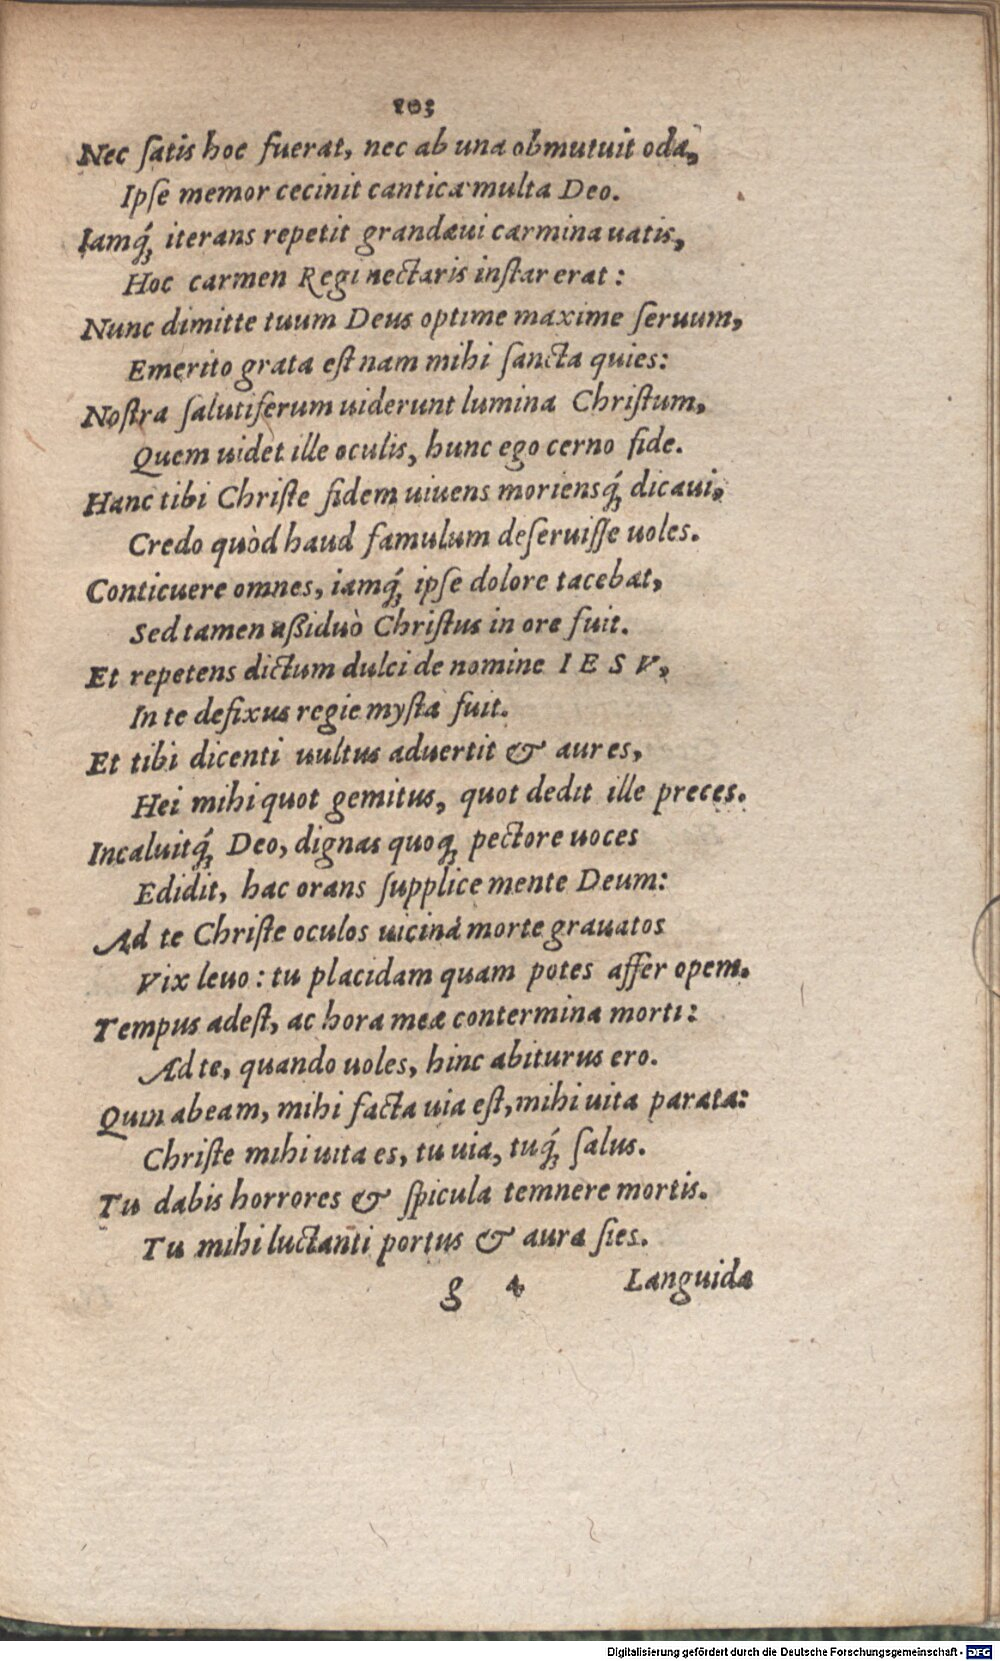 103
Nec ſatis hoc fuerat, nec ab una obmutuit oda,
Ipſe memor cecinit cantica multa Deo.
Iamq́; iterans repetit grandæui carmina uatis,
Hoc carmen Regi nectaris inſtar erat:
Nunc dimitte tuum Deus optime maxime ſeruum,
Emerito grata eſt nam mihi ſancta quies:
Noſtra ſalutiferum uiderunt lumina Chriſtum,
Quem uidet ille oculis, hunc ego cerno fide.
Hanc tibi Chriſte fidem uiuens moriensq́; dicaui,
Credo quòd haud famulum deſeruiſſe uoles.
Conticuere omnes, iamq́; ipſe dolore tacebat,
Sed tamen aßiduò Chriſtus in ore fuit.
Et repetens dictum dulci de nomine IESV,
In te defixus regie myſta fuit.
Et tibi dicenti uultus aduertit & aures,
Hei mihi quot gemitus, quot dedit ille preces.
Incaluitq́; Deo, dignas quoq; pectore uoces
Edidit, hac orans ſupplice mente Deum:
Ad te Chriſte oculos uicina morte grauatos
Vix leuo: tu placidam quam potes affer opem.
Tempus adeſt, ac hora meæ contermina morti:
Ad te, quando uoles, hinc abiturus ero.
Quin abeam, mihi facta uia eſt, mihi uita parata:
Chriſte mihi uita es, tu uia, tuq́; ſalus.
Tu dabis horrores & ſpicula temnere mortis.
Tu mihi luctanti portus & aura ſies.
g 4 Languida
Digitalisierung gefördert durch die Deutsche Forschungsgemeinschaft - DFG